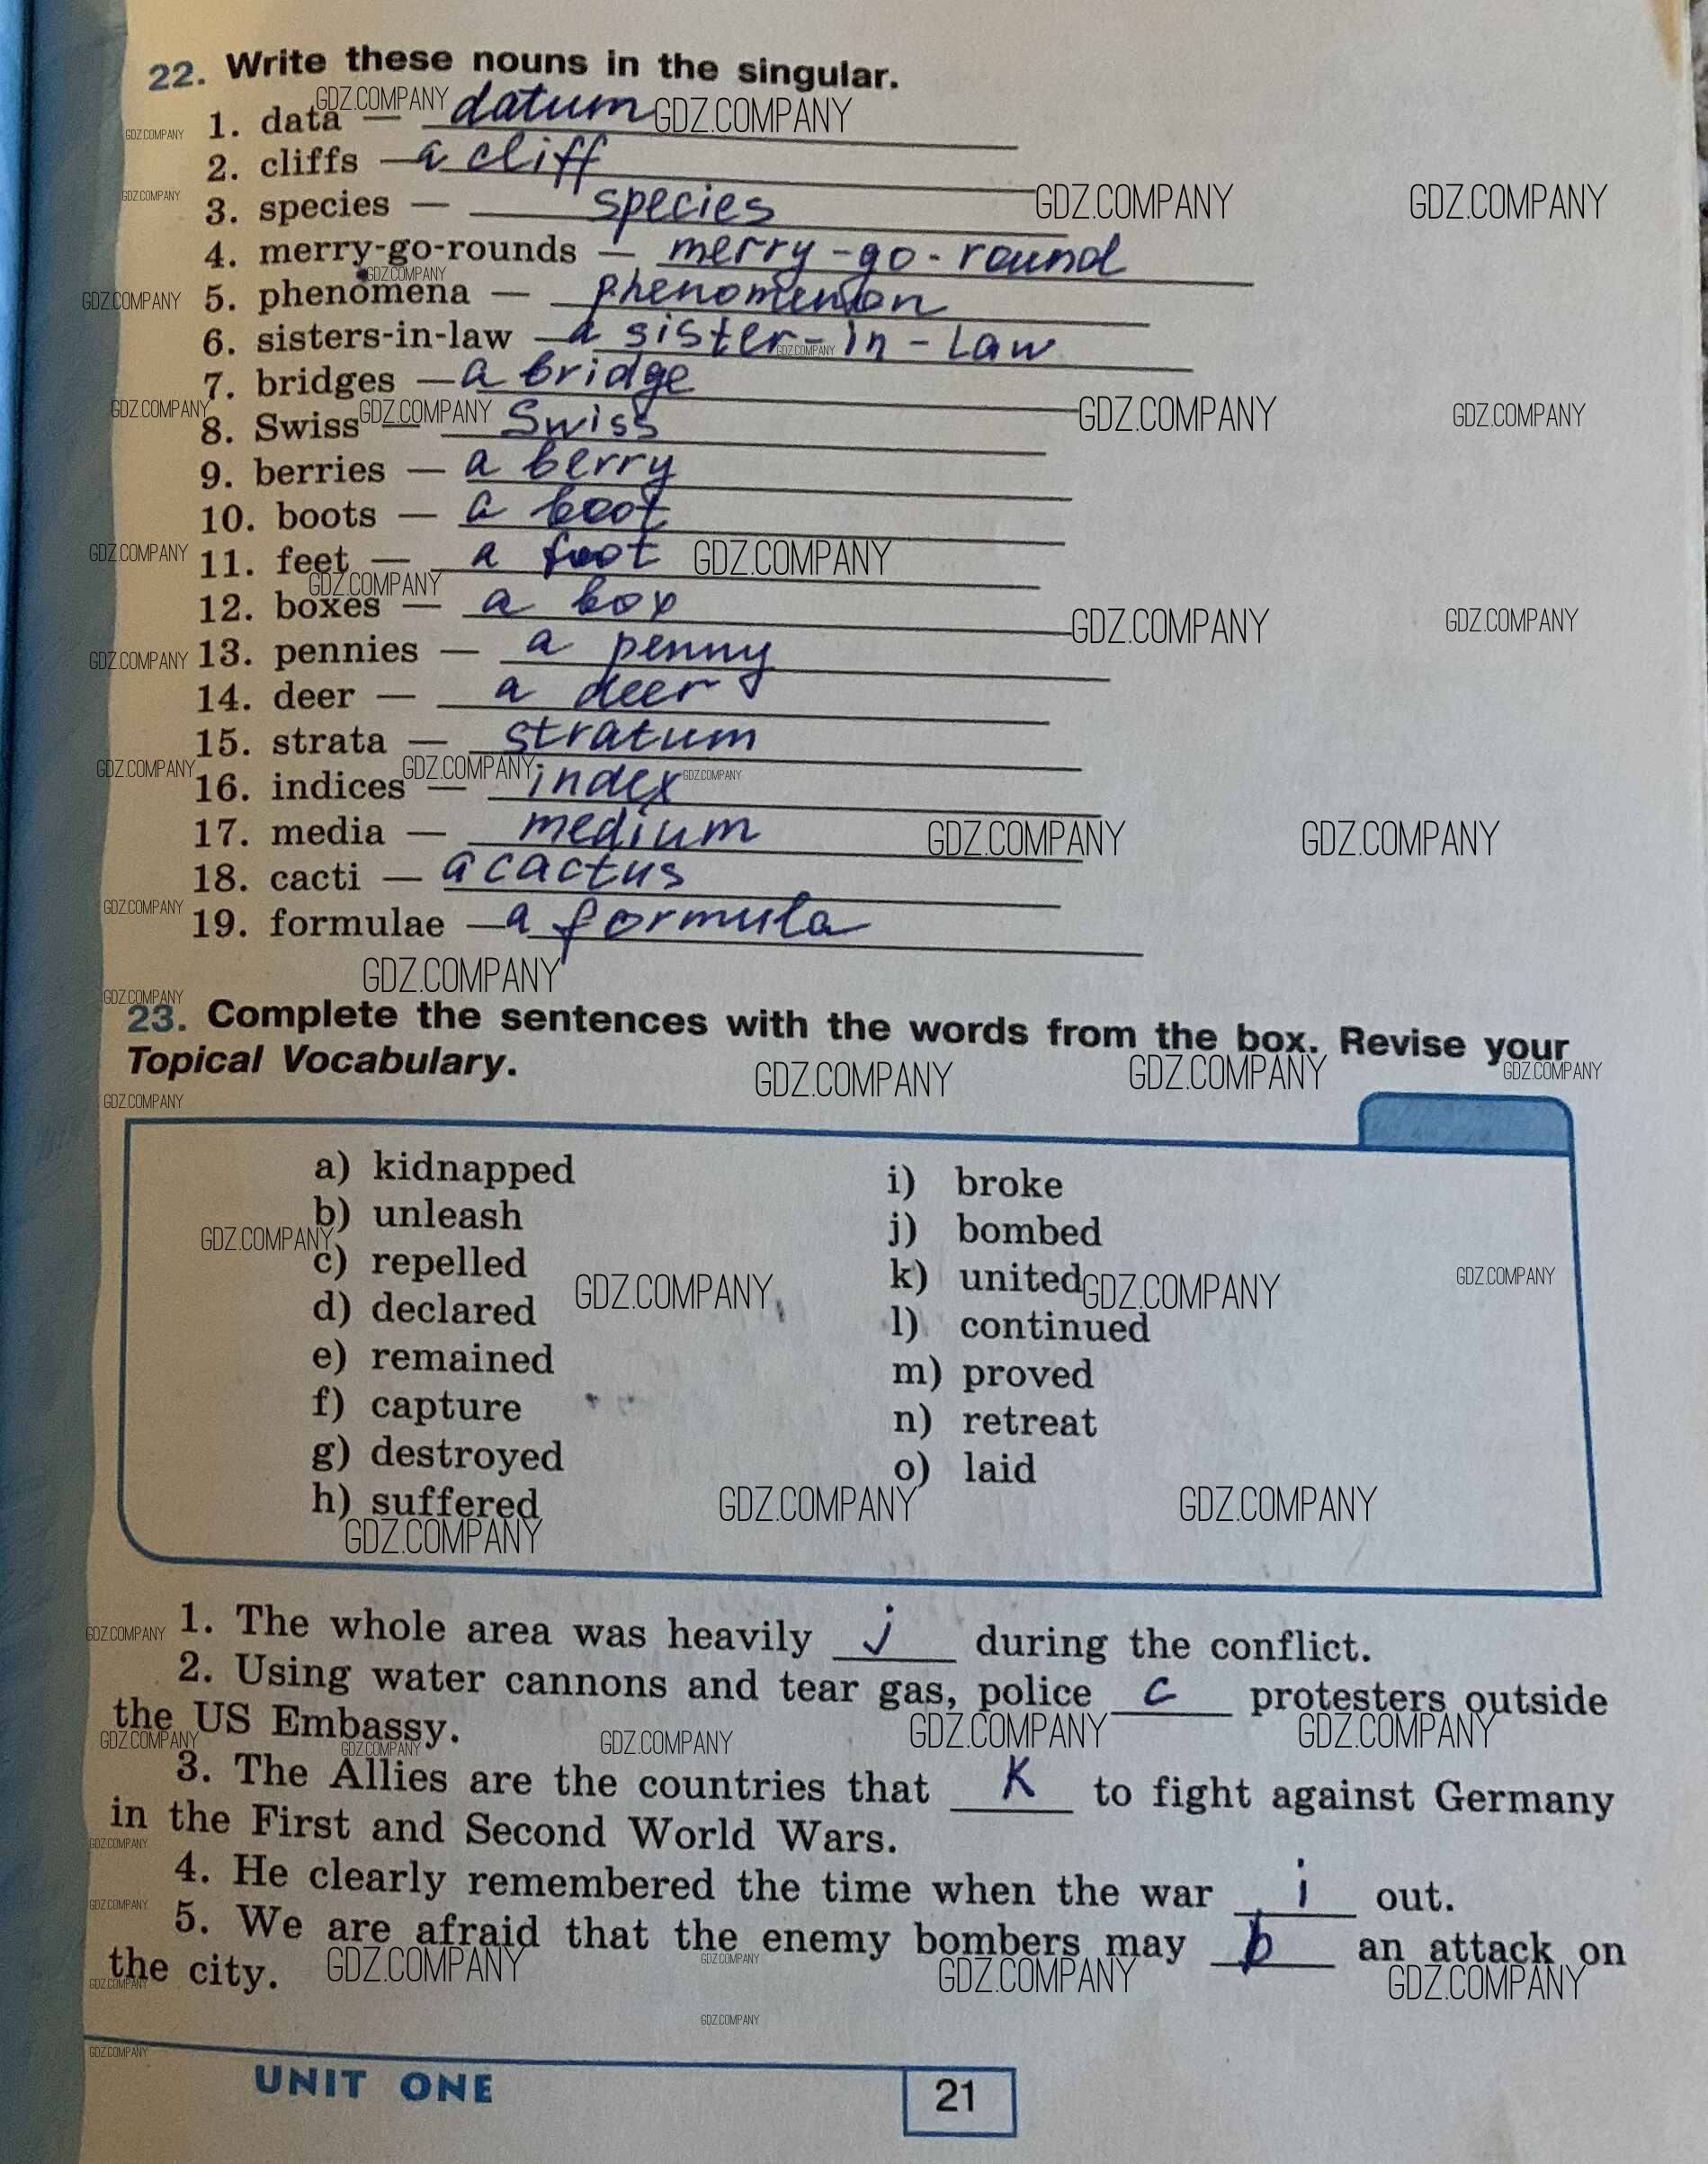 22. Write these nouns in the singular.
1. data — datum
2. cliffs — a cliff
3. species — species
4. merry-go-rounds — merry-go-round
5. phenomena — phenomenon
6. sisters-in-law — a sister-in-law
7. bridges — a bridge
8. Swiss — Swiss
9. berries — a berry
10. boots — a boot
11. feet — a foot
12. boxes — a box
13. pennies — a penny
14. deer — a deer
15. strata — stratum
16. indices — index
17. media — medium
18. cacti — a cactus
19. formulae — a formula
GDZ.COMPANY
23. Complete the sentences with the words from the box. Revise your
Topical Vocabulary.
a) kidnapped
b) unleash
c) repelled
d) declared
e) remained
f) capture
g) destroyed
h) suffered
i) broke
j) bombed
k) united
l) continued
m) proved
n) retreat
o) laid
1. The whole area was heavily j during the conflict.
2. Using water cannons and tear gas, police c protesters outside
the US Embassy.
3. The Allies are the countries that K to fight against Germany
in the First and Second World Wars.
4. He clearly remembered the time when the war i out.
5. We are afraid that the enemy bombers may b an attack on
the city.
UNIT ONE
21